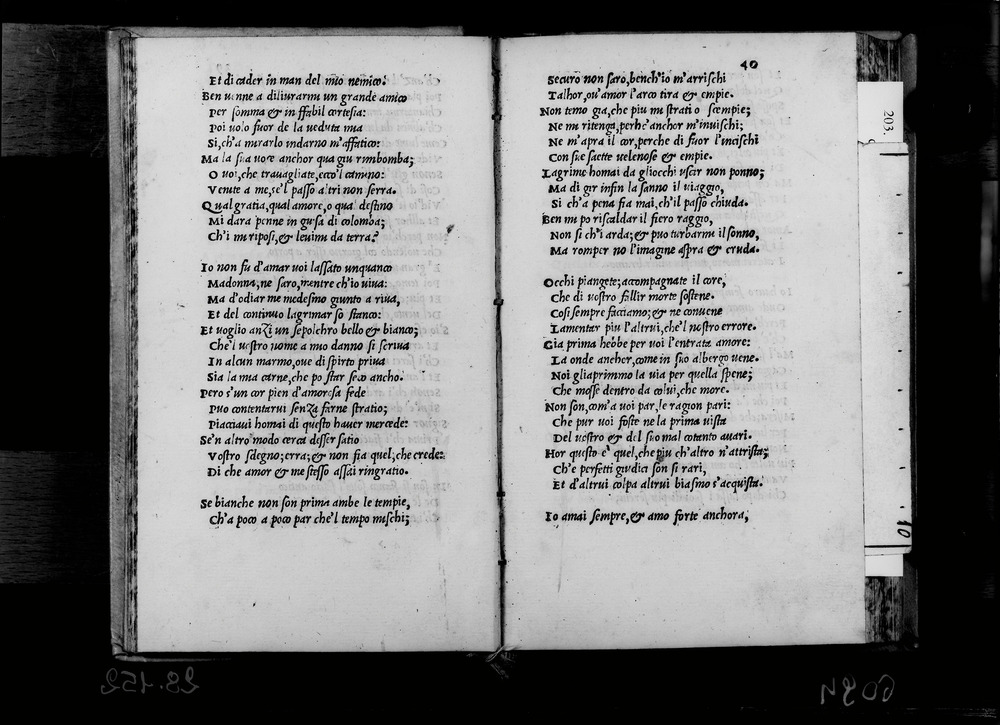 Et di cader in man del mio nemico.
Ben venne a diliurarmi un grande amico
Per somma & in ffabil cortesia:
Poi uolo fuor de la ueduta mia
Si, ch'a mirarlo indarno m'affatico:
Ma la sua uoce anchor qua giu rimbomba;
O uoi, che trauagliate, ecco'l camino:
Venite a me, se'l passo altri non serra.
Qual gratia, qual amore, o qual destino
Mi dara penne in guisa di colomba;
Ch'i mi riposi, & leuimi da terra?
Io non fu d'amar uoi lassato unquanco
Madonna, ne saro, mentre ch'io uiua:
Ma d'odiar me medesmo giunto a riua,
Et del continuo lagrimar so stanco:
Et uoglio anzi un sepolchro bello & bianco;
Che'l uostro nome a mio danno si scriua
In alcun marmo, oue di spirto priua
Sia la mia carne, che po star seco ancho.
Pero s'un cor pien d'amorosa fede
Puo contentarui senza farne stratio;
Piacciaui homai di questo hauer mercede:
Se'n altro modo cerca d'esser satio
Vostro sdegno; erra; & non fia quel, che crede:
Di che amor & me stesso assai ringratio.
Se bianche non son prima ambe le tempie,
Ch'a poco a poco par che'l tempo mischi;
40
Securo non saro, bench'io m'arrischi
Talhor, ou'amor l'arco tira & empie.
Non temo gia, che piu mi strati o scempie;
Ne mi ritenga, perch'anchor m'inuischi;
Ne m'apra il cor, perche di fuor l'incischi
Con sue saette uelenose & empie.
Lagrime homai da gliocchi uscir non ponno;
Ma di gir infin la sanno il uiaggio,
Si ch'a pena fia mai, ch'il passo chiuda.
Ben mi po riscaldar il fiero raggio,
Non si ch'i arda; & puo turbarmi il sonno,
Ma romper no l'imagine aspra & cruda.
Occhi piangete; accompagnate il core,
Che di uostro fallir morte sostene.
Cosi sempre facciamo; & ne conuene
Lamentar piu l'altrui, che'l nostro errore.
Gia prima hebbe per uoi l'entrata amore:
La onde anchor, come in suo albergo uene.
Noi gliaprimmo la uia per quella spene;
Che mosse dentro da colui, che more.
Non son, com'a uoi par, le ragion pari:
Che pur uoi foste ne la prima uista
Del uostro & del suo mal cotanto auari.
Hor questo e' quel, che piu ch'altro n'attrista;
Ch'e perfetti giudici son si rari,
Et d'altrui colpa altrui biasmo s'acquista.
Io amai sempre, & amo forte anchora,
203
10
28.152
6094